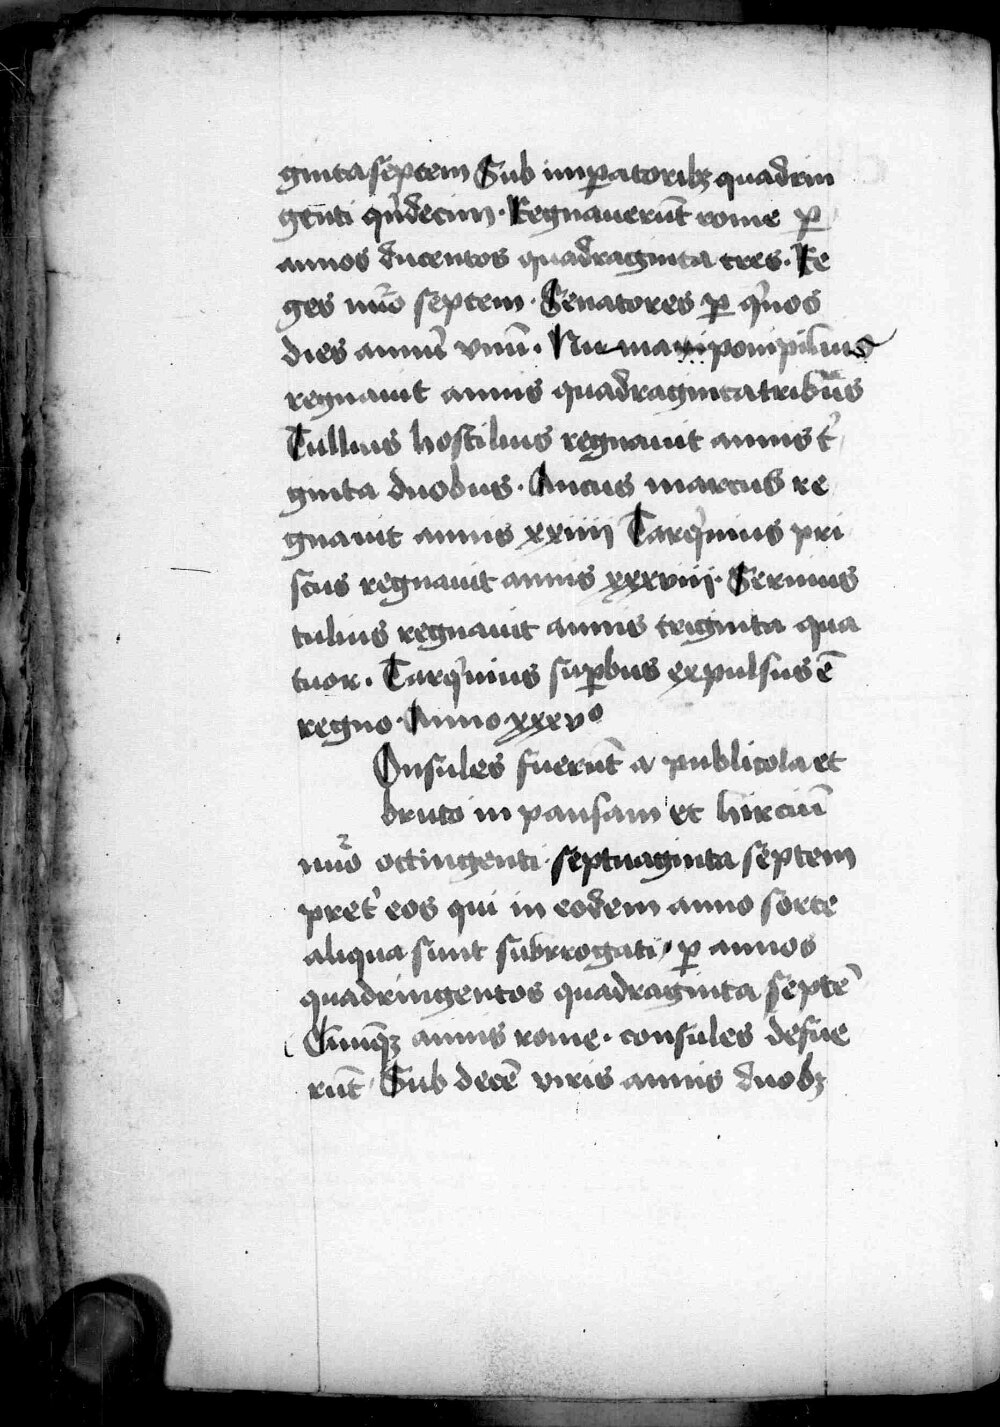 gintaseptem Sub imꝑatoribꝫ quadrin
genti qͥndecim · Regnauerūt rome ꝑ
annos ducentos quadraginta tres · Re
ges nūo septem · Senatores ꝑ qͥnos
dies annū vnū · Nu ma pompilius
regnauit annis quadragintatribus
Tullius hostilius regnauit annis tͥ
ginta duobus · Ancus marcus re
gnauit annis xxiiii Tarqͥnius pri
scus regnauit annis xxxviii · Seruius
tulius regnauit annis triginta qua
tuor · Tarqͥnius suꝑbus expulsus ē
regno · Anno xxxvº
Onsules fuerūt a publicola et
bruto in pansam et hirciū
nūo octingenti septuaginta septem
pret᾽ eos qui in eodem anno sorte
aliqua sunt subrrogati · ꝑ annos
quadringentos quadraginta septē
Cunqꝫ annis rome · consules defue
rūt · Sub decē viris annis duobꝫ